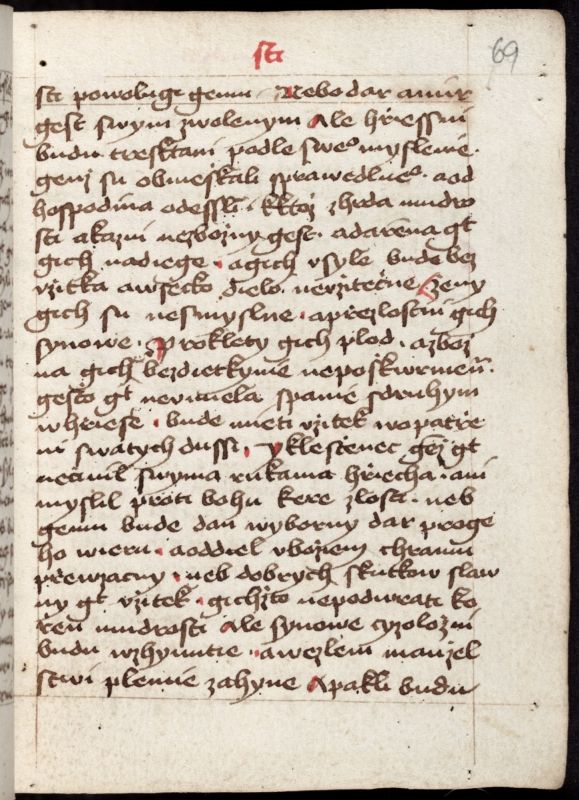 sti
69
sti powoluge gemu Nebo dar a mir
gest swym zwolenym Ale hrziessni
budu tresktani podle sweº myslenie
genz su obmeskali sprawedlneº a od
hospodina odessli ktoz zhrda mudro
sti a kazni nezbozny gest a darena gt
gich nadiege a gich vsyle bude bez
vzitka a wsecko dielo nevzitecne Zeny
gich su nesmyslne a przezlostni gich
synowe Proklety gich plod a zboz
na gich bezdietkynie neposkwrnieni
gesto gt neviniela spanie s druhym
w hrziese bude mieti vzitek w opatrze
ni swatych dussi y klestenec genz gt
necinil swyma rukama hrziecha ani
myslil proti bohu kere zlosti neb
gemu bude dan wyborny dar proge
ho wieru a oddiel v boziem chramu
przewzacny neb dobrych skutkow slaw
ny gt vzitek gichzto nepodwrati ko
rzen mudrosti Ale synowe cyzolozni
budu w zhynutie a w ezlem manzel
stwi plemie zahyne A pakli budu